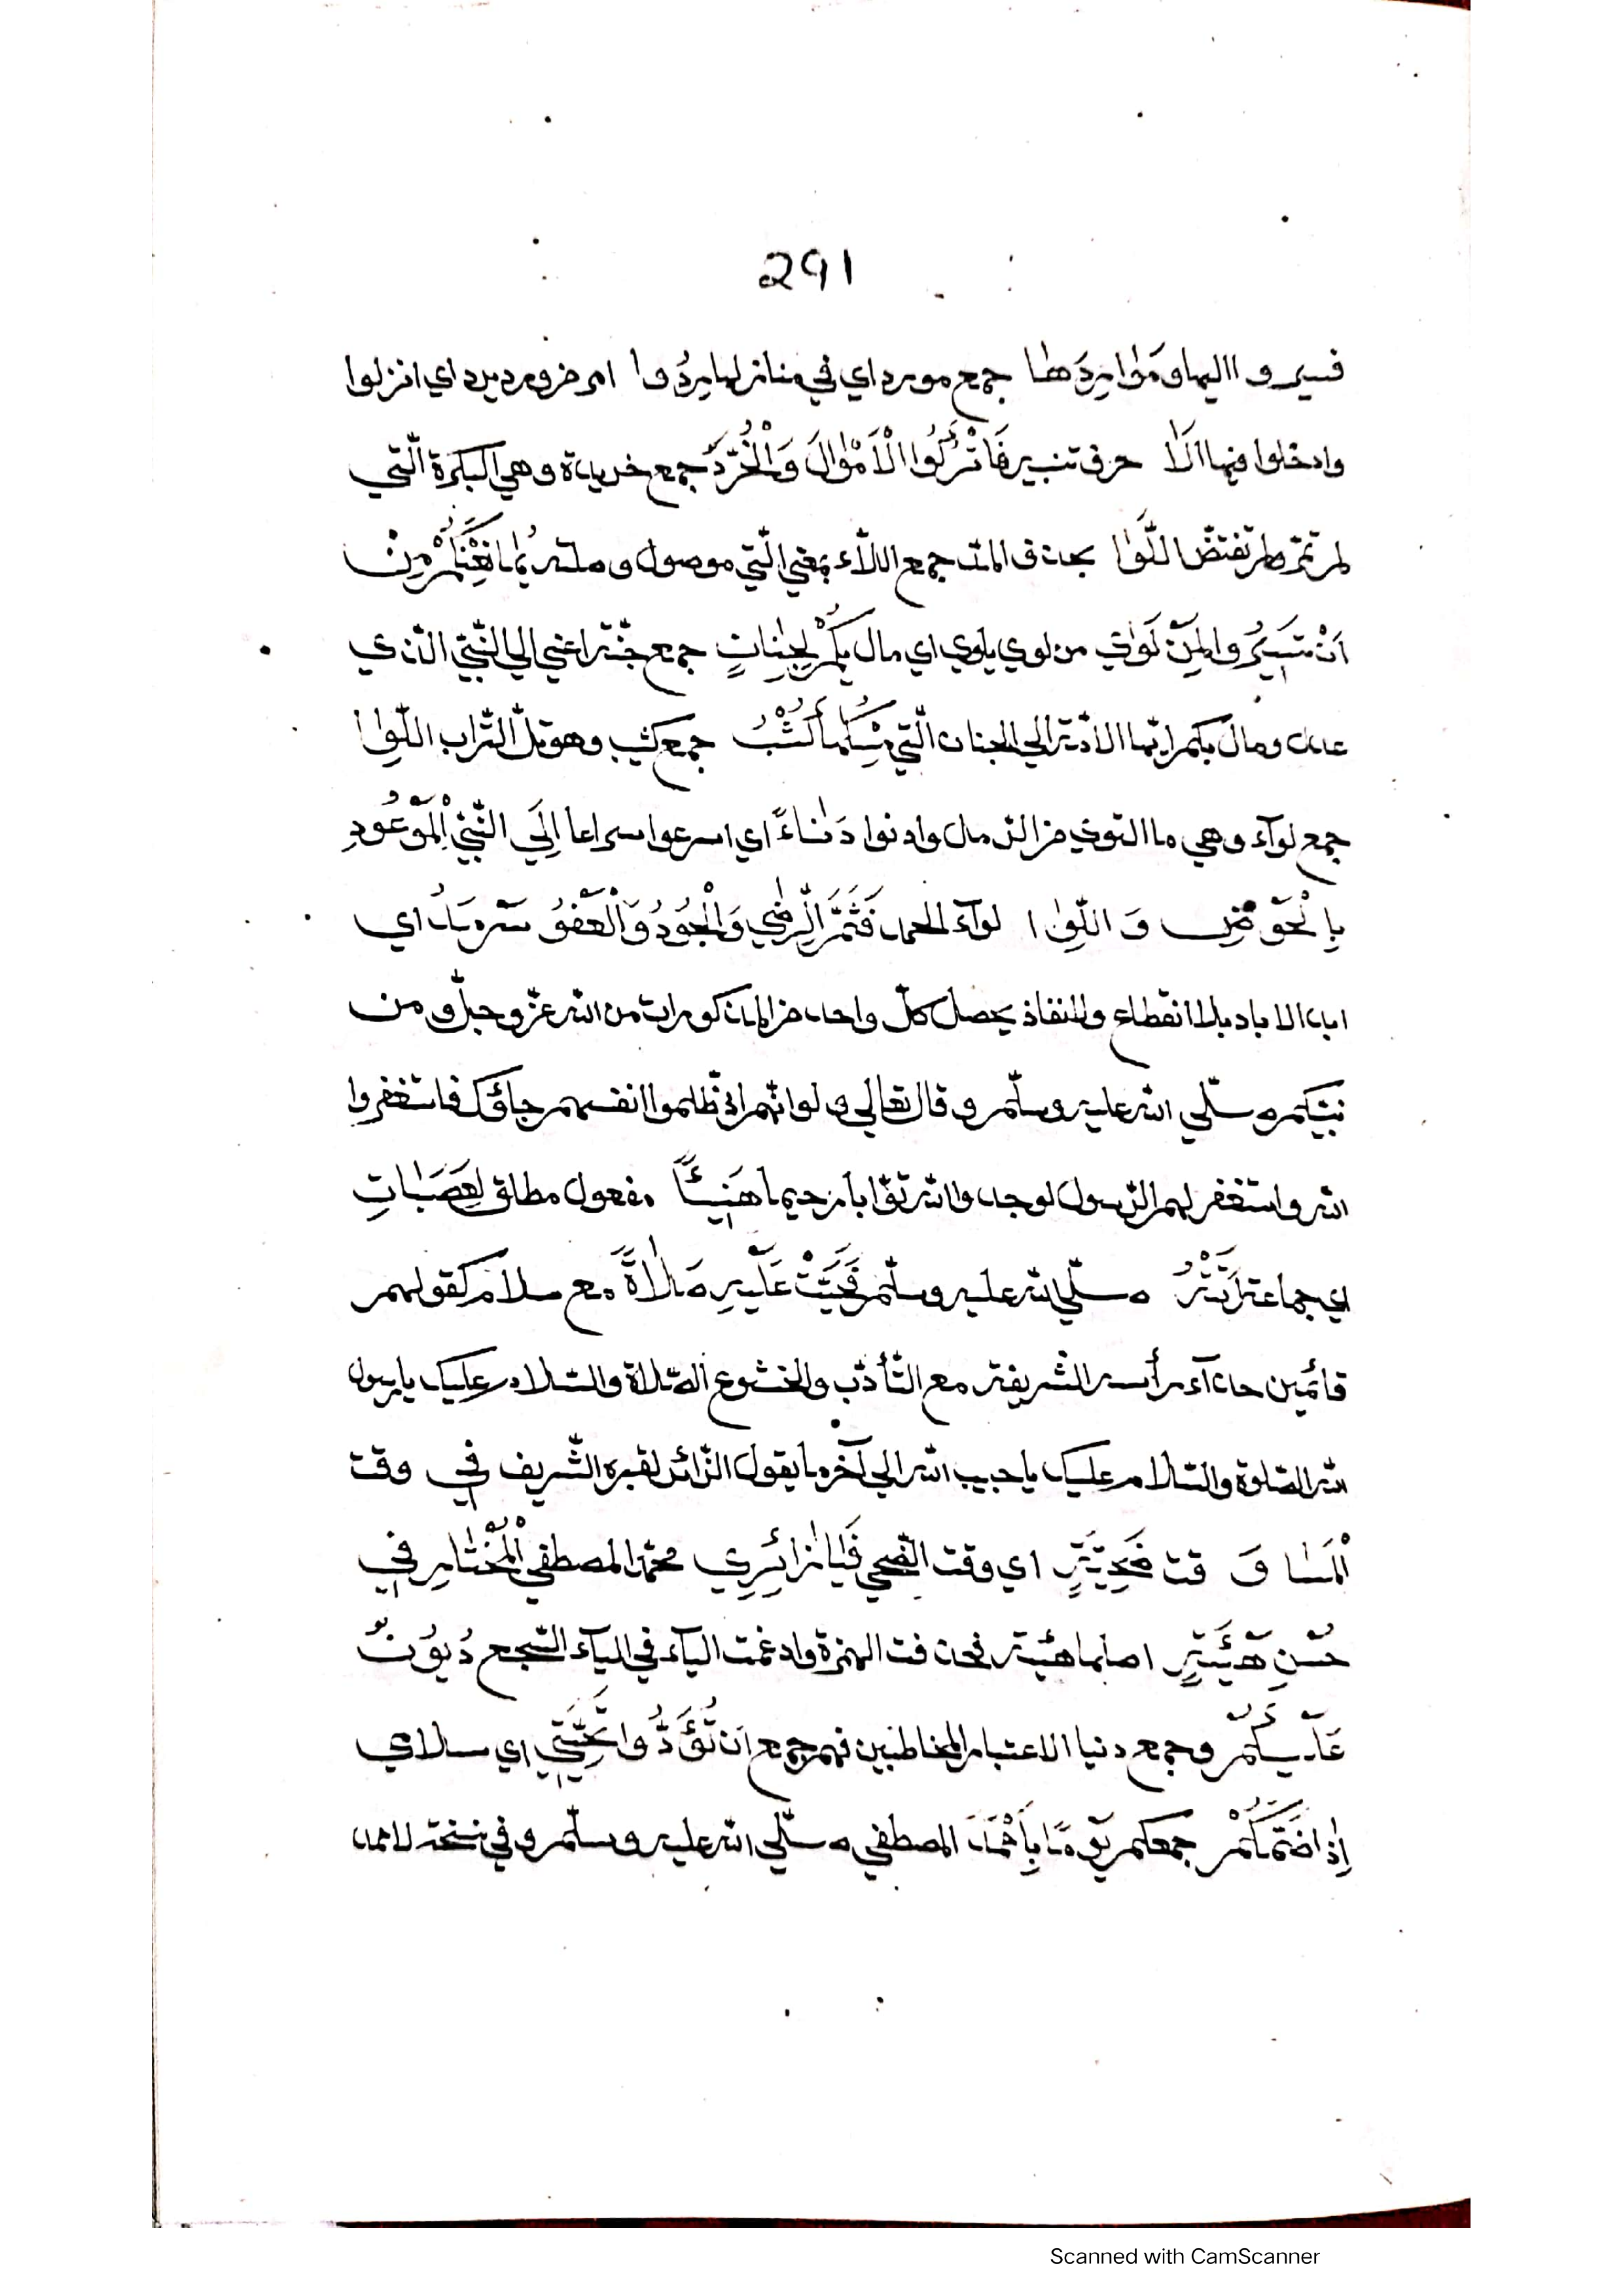 291
فسيروا اليها وَمَوٰارِدَهٰا جمع مورد اي في منازلها رِدُوا امر من ورد يرد اي انزلوا
وادخلوا فيها اَلَا حرف تنبيه فَاتْرُكُوا الْاَمْوٰالَ وَالْخُرَّدَ جمع خريدة وهي البكرة الّتي
لم تمرّ ولم تفتضّ اللَّوَا بحذف المدّ جمع اللّاء بمعني الّتي موصول وصلته رُبَّمَا نِعْنَكُمْ مِنْ
اَنْ تَسِيرُوا لِمَنْ لَوٰي من لوي يلوي اي مال بِكُمْ لِجِنٰانٍ جمع جنّة اعني الي النّبيّ الّذي
عدل ومال بكم ايّها الامّة الي الجنان الّتي مِسْكُهَا كُثْبُ جمع كثيب وهو تلّ التّراب اللِّوٰا
جمع لوآء وهي ما التوي من الرّمال وادنوا دَنٰاءً اي اسرعوا سراعا اِلَي النَّبِيِّ الْمَوْعُودِ
بِالْحَوْضِ وَ اللِّوٰا لوآء الحمد فَثَمَّ الرِّضٰي وَالْجُودُ وَالْعَفْوُ سَرْمَدُ اي
ابد الاباد بلا انقطاع والنفاذ يحصل كلّ واحد من المذكورات من الله عزّ وجلّ و من
نبيّكم صلّي الله عليه وسلّم و قال تعالي ولو انّهم اذ ظّلموا انفسهم جاؤك فاستغفروا
الله واستغفر لهم الرّسول لوجدوا الله توّابا رحيما هَنِيئًا مفعول مطلق لِعَصَبٰاتٍ
اي جماعة زَارَتْهُ صلّي الله عليه وسلّم فَحَيَّتْ عَلَيْهِ صَلٰاةً مع سلام كقولهم
قائمين حذآء رأسه الشّريفة مع التّأدّب والخشوع الصّلاة والسّلام عليك يا رسول
الله الصّلوة والسّلام عليك يا حبيب الله الي آخر ما يقول الزّائر لقبره الشّريف في وقت
الْمَسٰا وَ قت ضَحِيَّةٍ اي وقت الضّحي فَيٰا زٰائِرِي محمّد المصطفي الْمُخْتٰارِ فِي
حُسْنِ هَيْئَةٍ اصلها هيئة فحذفت الهمزة وادغمت اليآء في اليآء السّجع دُيُونٌ
عَلَيْكُمْ وجمع دنيا الاعتبار المخاطبين فهم جمع اَن تُؤَدُّوا تَحِيَّتِي اي سلامي
اِذٰا ضَمَّكُمْ جمعكم يَوْمًا بِاَحْمَدَ المصطفي صلّي الله عليه وسلّم و في نسخة لاحمد
Scanned with CamScanner